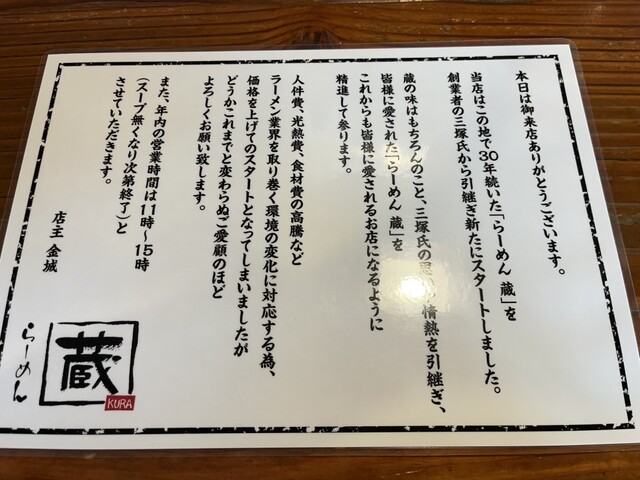 本日は御来店ありがとうございます。
当店はこの地で30年続いた「らーめん 蔵」を
創業者の三塚氏から引継ぎ新たにスタートしました。
蔵の味はもちろんのこと、三塚氏の思 情熱を引継ぎ、
皆様に愛された「らーめん 蔵」を
これからも皆様に愛されるお店になるように
精進して参ります。
人件費、光熱費、食材費の高騰など
ラーメン業界を取り巻く環境の変化に対応する為、
価格を上げてのスタートとなってしまいましたが
どうかこれまでと変わらぬご愛顧のほど
よろしくお願い致します。
また、年内の営業時間は11時〜15時
(スープ無くなり次第終了)と
させていただきます。
店主 金城
蔵
KURA
らーめん